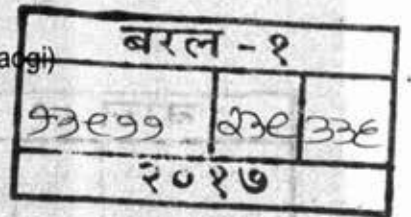 adgi)
बरल - १
१३९११ २३९ ३३९
२०१७